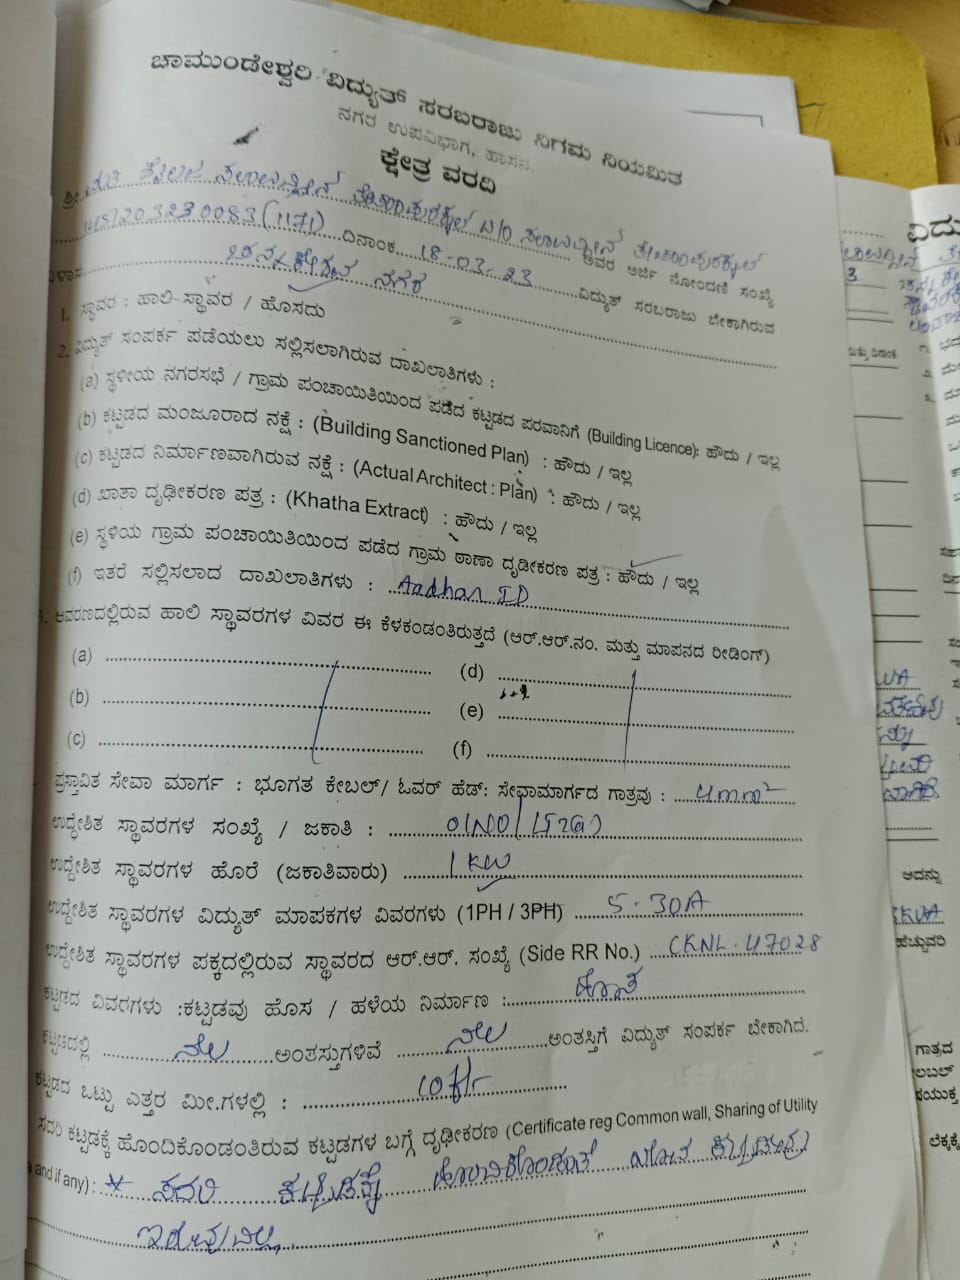 ಚಾಮುಂಡೇಶ್ವರಿ ವಿದ್ಯುತ್ ಸರಬರಾಜು ನಿಗಮ ನಿಯಮಿತ
ನಗರ ಉಪವಿಭಾಗ, ಹಾಸನ.
ಕ್ಷೇತ್ರ ವರದಿ
ಶ್ರೀ
ಅವರ ಅರ್ಜಿ ನೋಂದಣಿ ಸಂಖ್ಯೆ
(1171) ದಿನಾಂಕ 18-03-23 ವಿದ್ಯುತ್ ಸರಬರಾಜು ಬೇಕಾಗಿರುವ
ನಗರ
1. ಸ್ಥಾವರ : ಹಾಲಿ ಸ್ಥಾವರ / ಹೊಸದು
2. ವಿದ್ಯುತ್ ಸಂಪರ್ಕ ಪಡೆಯಲು ಸಲ್ಲಿಸಲಾಗಿರುವ ದಾಖಲಾತಿಗಳು :
(a) ಸ್ಥಳೀಯ ನಗರಸಭೆ / ಗ್ರಾಮ ಪಂಚಾಯಿತಿಯಿಂದ ಪಡೆದ ಕಟ್ಟಡದ ಪರವಾನಿಗೆ (Building Licence): ಹೌದು / ಇಲ್ಲ
(b) ಕಟ್ಟಡದ ಮಂಜೂರಾದ ನಕ್ಷೆ : (Building Sanctioned Plan) : ಹೌದು / ಇಲ್ಲ
(c) ಕಟ್ಟಡದ ನಿರ್ಮಾಣವಾಗಿರುವ ನಕ್ಷೆ : (Actual Architect : Plan) : ಹೌದು / ಇಲ್ಲ
(d) ಖಾತಾ ದೃಢೀಕರಣ ಪತ್ರ : (Khatha Extract) : ಹೌದು / ಇಲ್ಲ
(e) ಸ್ಥಳಿಯ ಗ್ರಾಮ ಪಂಚಾಯಿತಿಯಿಂದ ಪಡೆದ ಗ್ರಾಮ ಠಾಣಾ ದೃಢೀಕರಣ ಪತ್ರ : ಹೌದು / ಇಲ್ಲ
(f) ಇತರೆ ಸಲ್ಲಿಸಲಾದ ದಾಖಲಾತಿಗಳು : Aadhar ID
ಆವರಣದಲ್ಲಿರುವ ಹಾಲಿ ಸ್ಥಾವರಗಳ ವಿವರ ಈ ಕೆಳಕಂಡಂತಿರುತ್ತದೆ (ಆರ್.ಆರ್.ನಂ. ಮತ್ತು ಮಾಪನದ ರೀಡಿಂಗ್)
(a) (d)
(b) (e)
(c) (f)
ಪ್ರಸ್ತಾವಿತ ಸೇವಾ ಮಾರ್ಗ : ಭೂಗತ ಕೇಬಲ್/ ಓವರ್ ಹೆಡ್: ಸೇವಾಮಾರ್ಗದ ಗಾತ್ರವು : 4mm²
ಉದ್ದೇಶಿತ ಸ್ಥಾವರಗಳ ಸಂಖ್ಯೆ / ಜಕಾತಿ :
ಉದ್ದೇಶಿತ ಸ್ಥಾವರಗಳ ಹೊರೆ (ಜಕಾತಿವಾರು) 1 KW
ಉದ್ದೇಶಿತ ಸ್ಥಾವರಗಳ ವಿದ್ಯುತ್ ಮಾಪಕಗಳ ವಿವರಗಳು (1PH / 3PH) 5-30A
ಉದ್ದೇಶಿತ ಸ್ಥಾವರಗಳ ಪಕ್ಕದಲ್ಲಿರುವ ಸ್ಥಾವರದ ಆರ್.ಆರ್. ಸಂಖ್ಯೆ (Side RR No.) CKNL-47028
ಕಟ್ಟಡದ ವಿವರಗಳು :ಕಟ್ಟಡವು ಹೊಸ / ಹಳೆಯ ನಿರ್ಮಾಣ :
ಕಟ್ಟಡದಲ್ಲಿ ನೆಲ ಅಂತಸ್ತುಗಳಿವೆ ನೆಲ ಅಂತಸ್ತಿಗೆ ವಿದ್ಯುತ್ ಸಂಪರ್ಕ ಬೇಕಾಗಿದೆ.
ಕಟ್ಟಡದ ಒಟ್ಟು ಎತ್ತರ ಮೀ.ಗಳಲ್ಲಿ :
ಸದರಿ ಕಟ್ಟಡಕ್ಕೆ ಹೊಂದಿಕೊಂಡಂತಿರುವ ಕಟ್ಟಡಗಳ ಬಗ್ಗೆ ದೃಢೀಕರಣ (Certificate reg Common wall, Sharing of Utility
and if any) : * ಸದರಿ ಕಟ್ಟಡಕ್ಕೆ ಹೊಂದಿಕೊಂಡಂತೆ ಯಾವ ಕಟ್ಟಡವು
ಇರುವುದಿಲ್ಲ